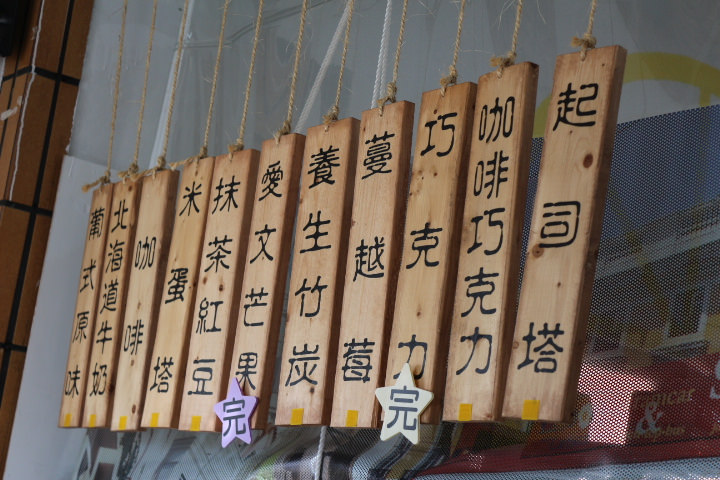 起司塔
咖啡巧克力
巧克力
蔓越莓
養生竹炭
愛文芒果
抹茶紅豆
米蛋塔
咖啡
北海道牛奶
葡式原味
完
完